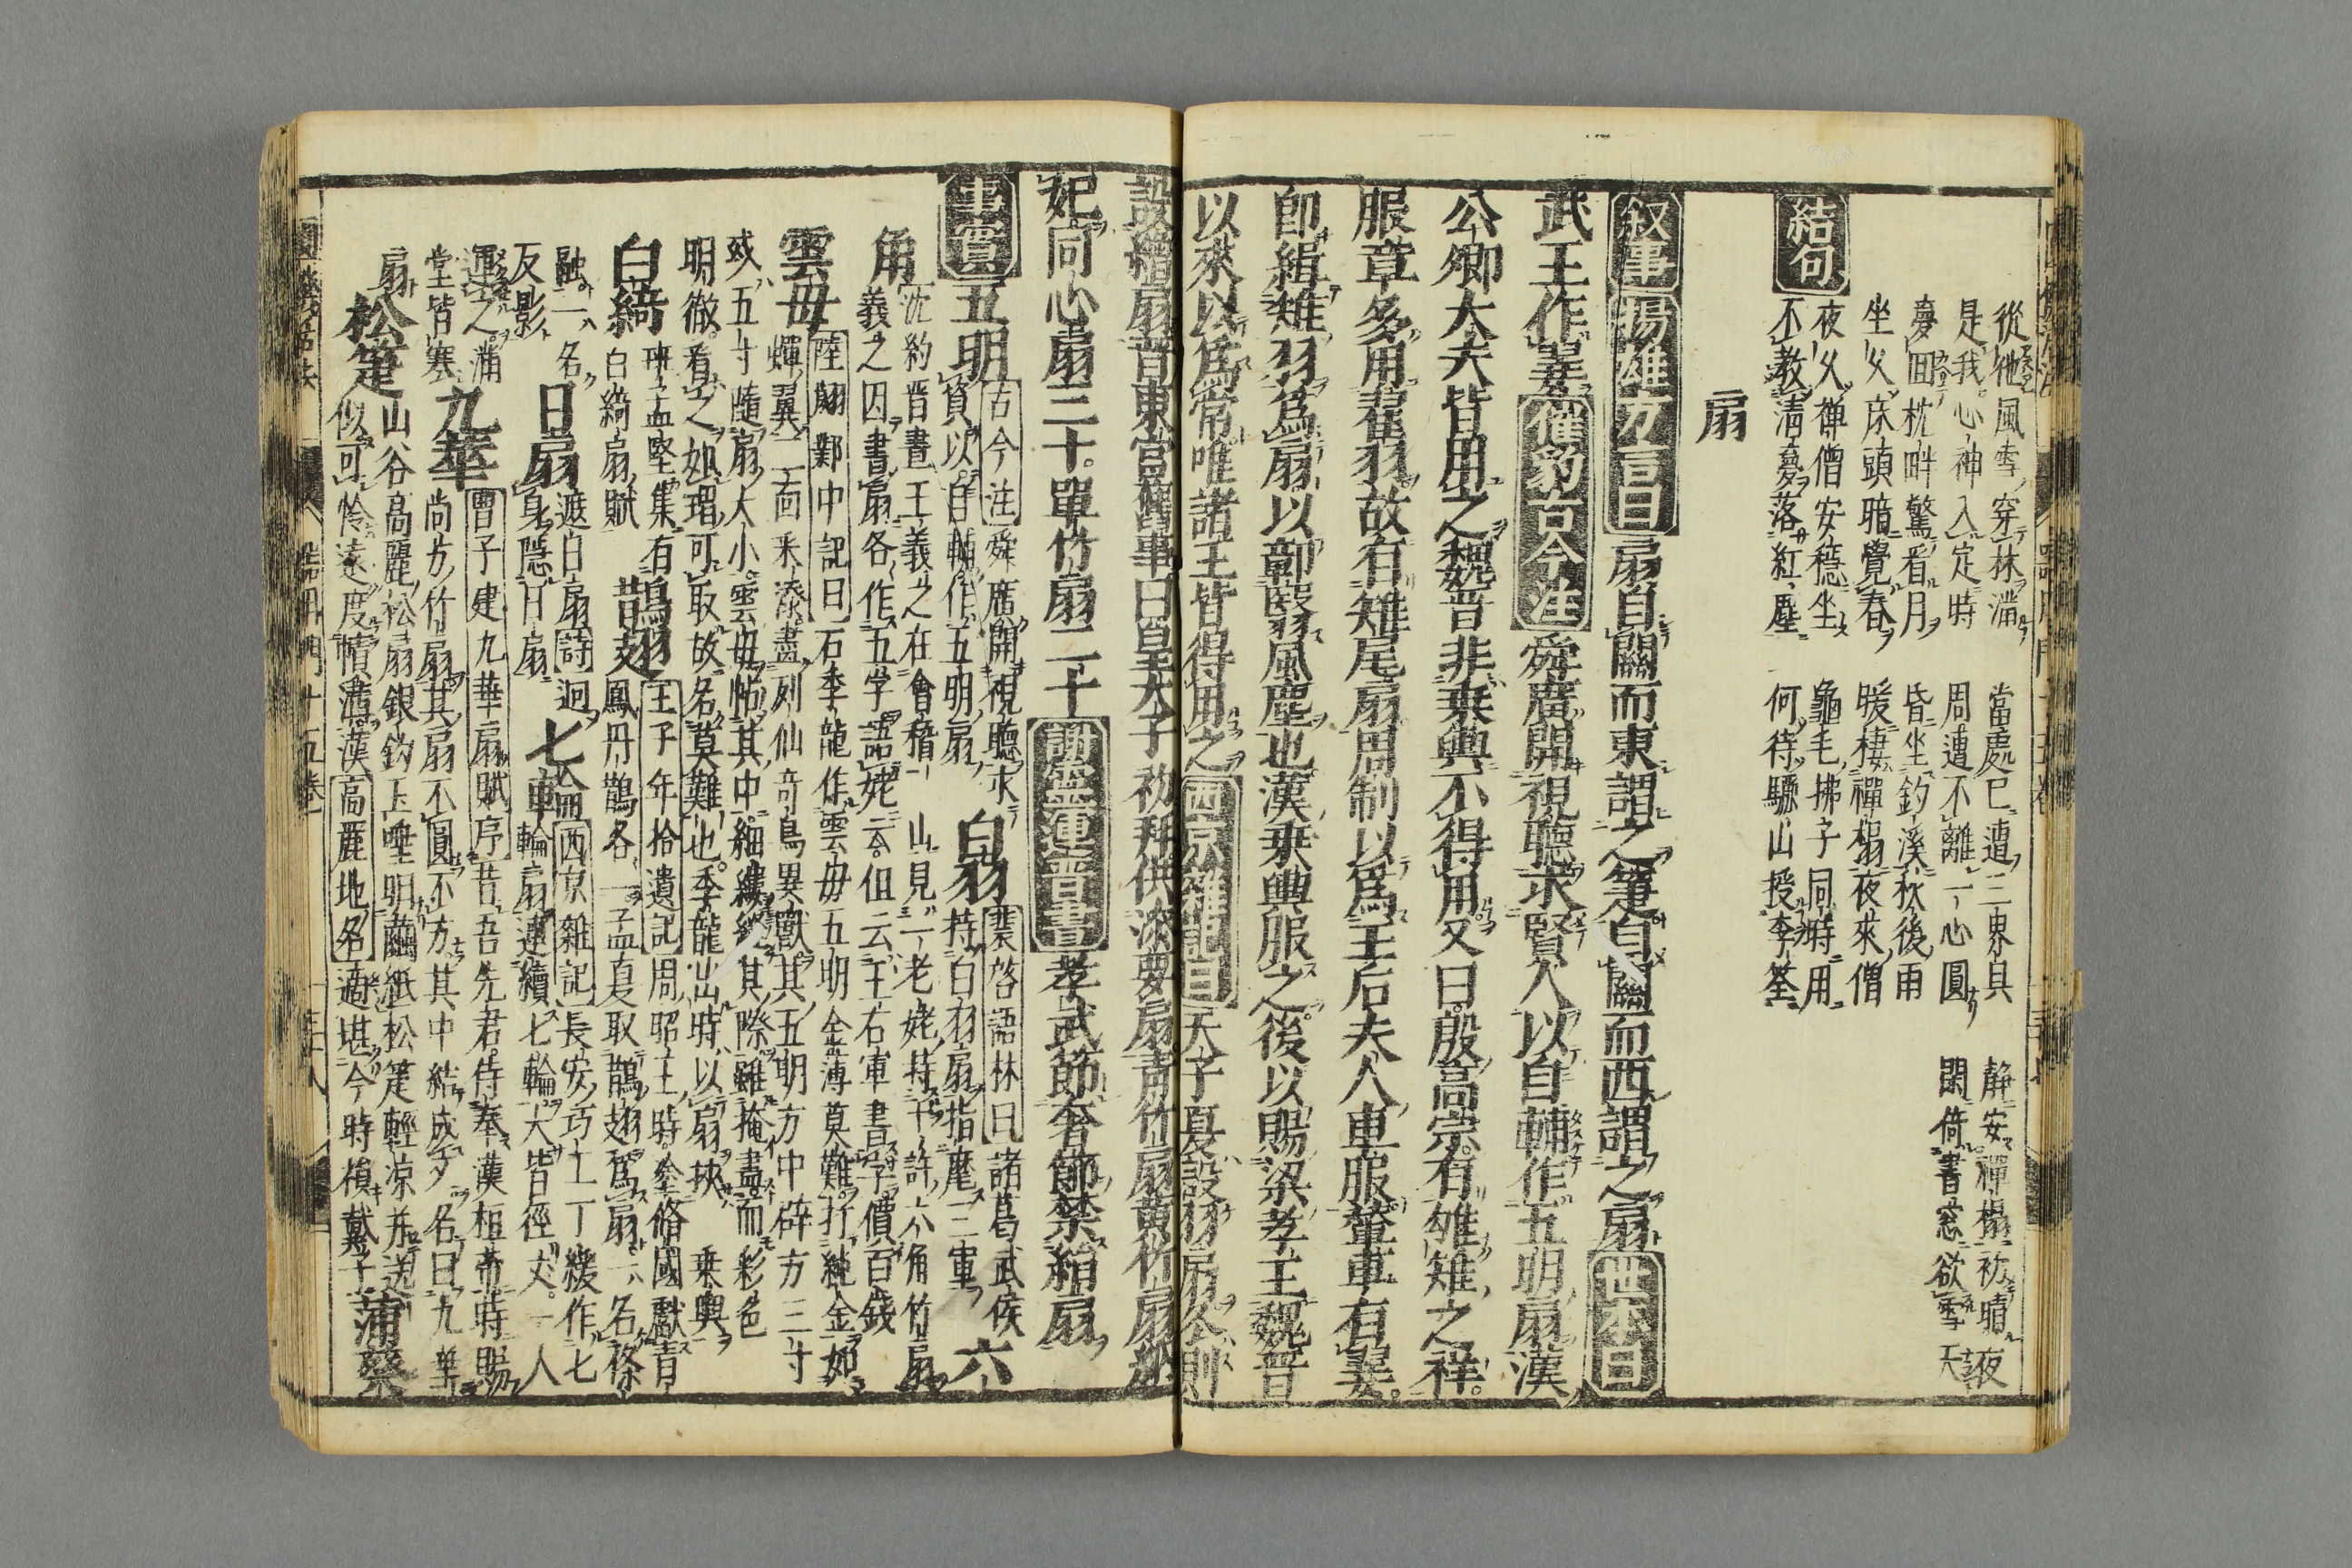 從他風雪穿林滿 當處已遭三界具 静安禪榻初晴夜
是我心神入定時 周遭不離一心圓 閑倚書窓欲雪天
夢回枕畔驚看月 昏坐釣溪秋後雨
坐久床頭暗覺春 暖棲禪榻夜來僧
夜久禅僧安穏坐 龜毛拂子同時用
結句 不教淸夢落紅塵 何待驪山授李筌
扇
叙事 揚雄方言曰 扇自關而東謂之箑自關而西謂之扇 世本曰
武王作翣 崔豹古今注 舜廣開視聽求賢人以自輔作五明扇漢
公卿大夫皆用之魏晋非乗輿不得用又曰殷高宗有雊雉之祥
服章多用翟羽故有雉尾扇周制以爲王后夫人車服輦車有翣
即緝雉羽爲扇以鄣翳風塵也漢乗輿服之後以賜梁孝王魏晋
以來以爲常唯諸王皆得用之 西京雜記曰 天子夏設羽扇冬則
設繒扇晋東宮舊事曰皇太子初拜供漆要扇青竹扇黄竹扇納
妃同心扇三十單竹扇二十 謝靈運晋書 孝武節奢節禁絹扇
事實 五明 古今注 舜廣開視聽求
賢以自輔作五明扇 白羽 裴啓語林曰 諸葛武侯
持白羽扇指麾三軍 六
角 沈約晋書 王羲之在會稽山見一老姥持十許六角竹扇
羲之因書扇各作五字語姥云但云王右軍書字價百錢
雲母 陸翽鄴中記曰 石季龍作雲母五明金薄莫難扇打純金如
蟬翼二面采漆畫列仙竒鳥異獸其五明方中辟方三寸
或五寸隨扇大小雲母帖其中細縷縫其際雖掩畫而彩色
明徹看之如謂可取故名莫難也季龍出時以扇挾乗輿
白綺 班孟堅集有
白綺扇賦 鵲翅 王子年拾遺記 周昭王時塗脩國獻青
鳳丹鵲各一孟夏取鵲翅爲扇一名條
融二名
反影 日扇 遮白扇 詩 迥
身隱日扇 七輪 西京雜記 長安巧工丁緩作七
輪扇連續七輪大皆徑丈一人
運之滿
堂皆寒 九華 曹子建九華扇賦序 昔吾先君侍奉漢桓帝時賜
尚方竹扇其扇不圓不方其中結成文名曰九華
扇 松箑 山谷高麗松扇 銀鈎玉唾明繭紙松箑輕凉并送
似可怜遠度幘溝漢 高麗地名 適堪今時襀戴子 蒲葵